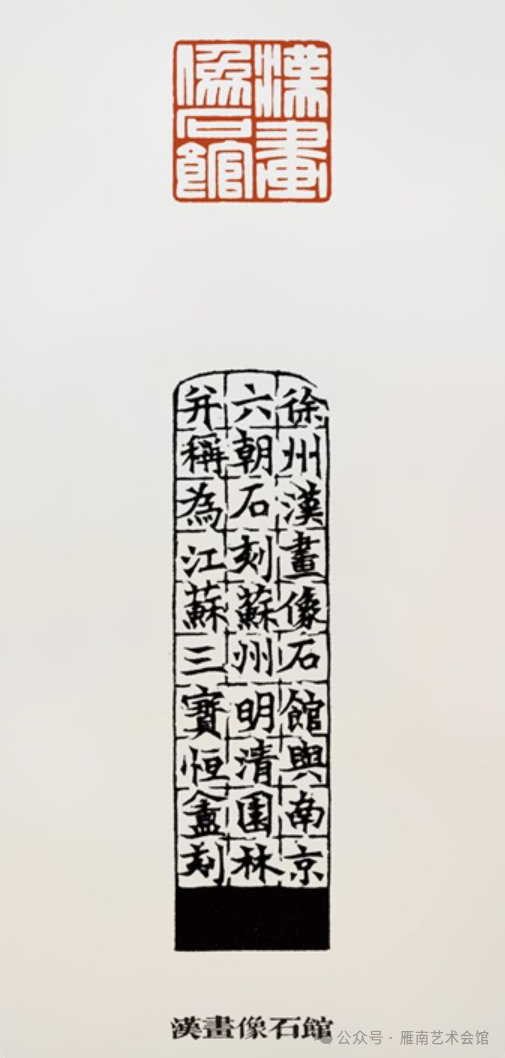 漢畫像石館
徐州漢畫像石館與南京
六朝石刻蘇州明清園林
并稱為江蘇三寶恒盦刻
漢畫像石館
公众号 · 雁南艺术会馆